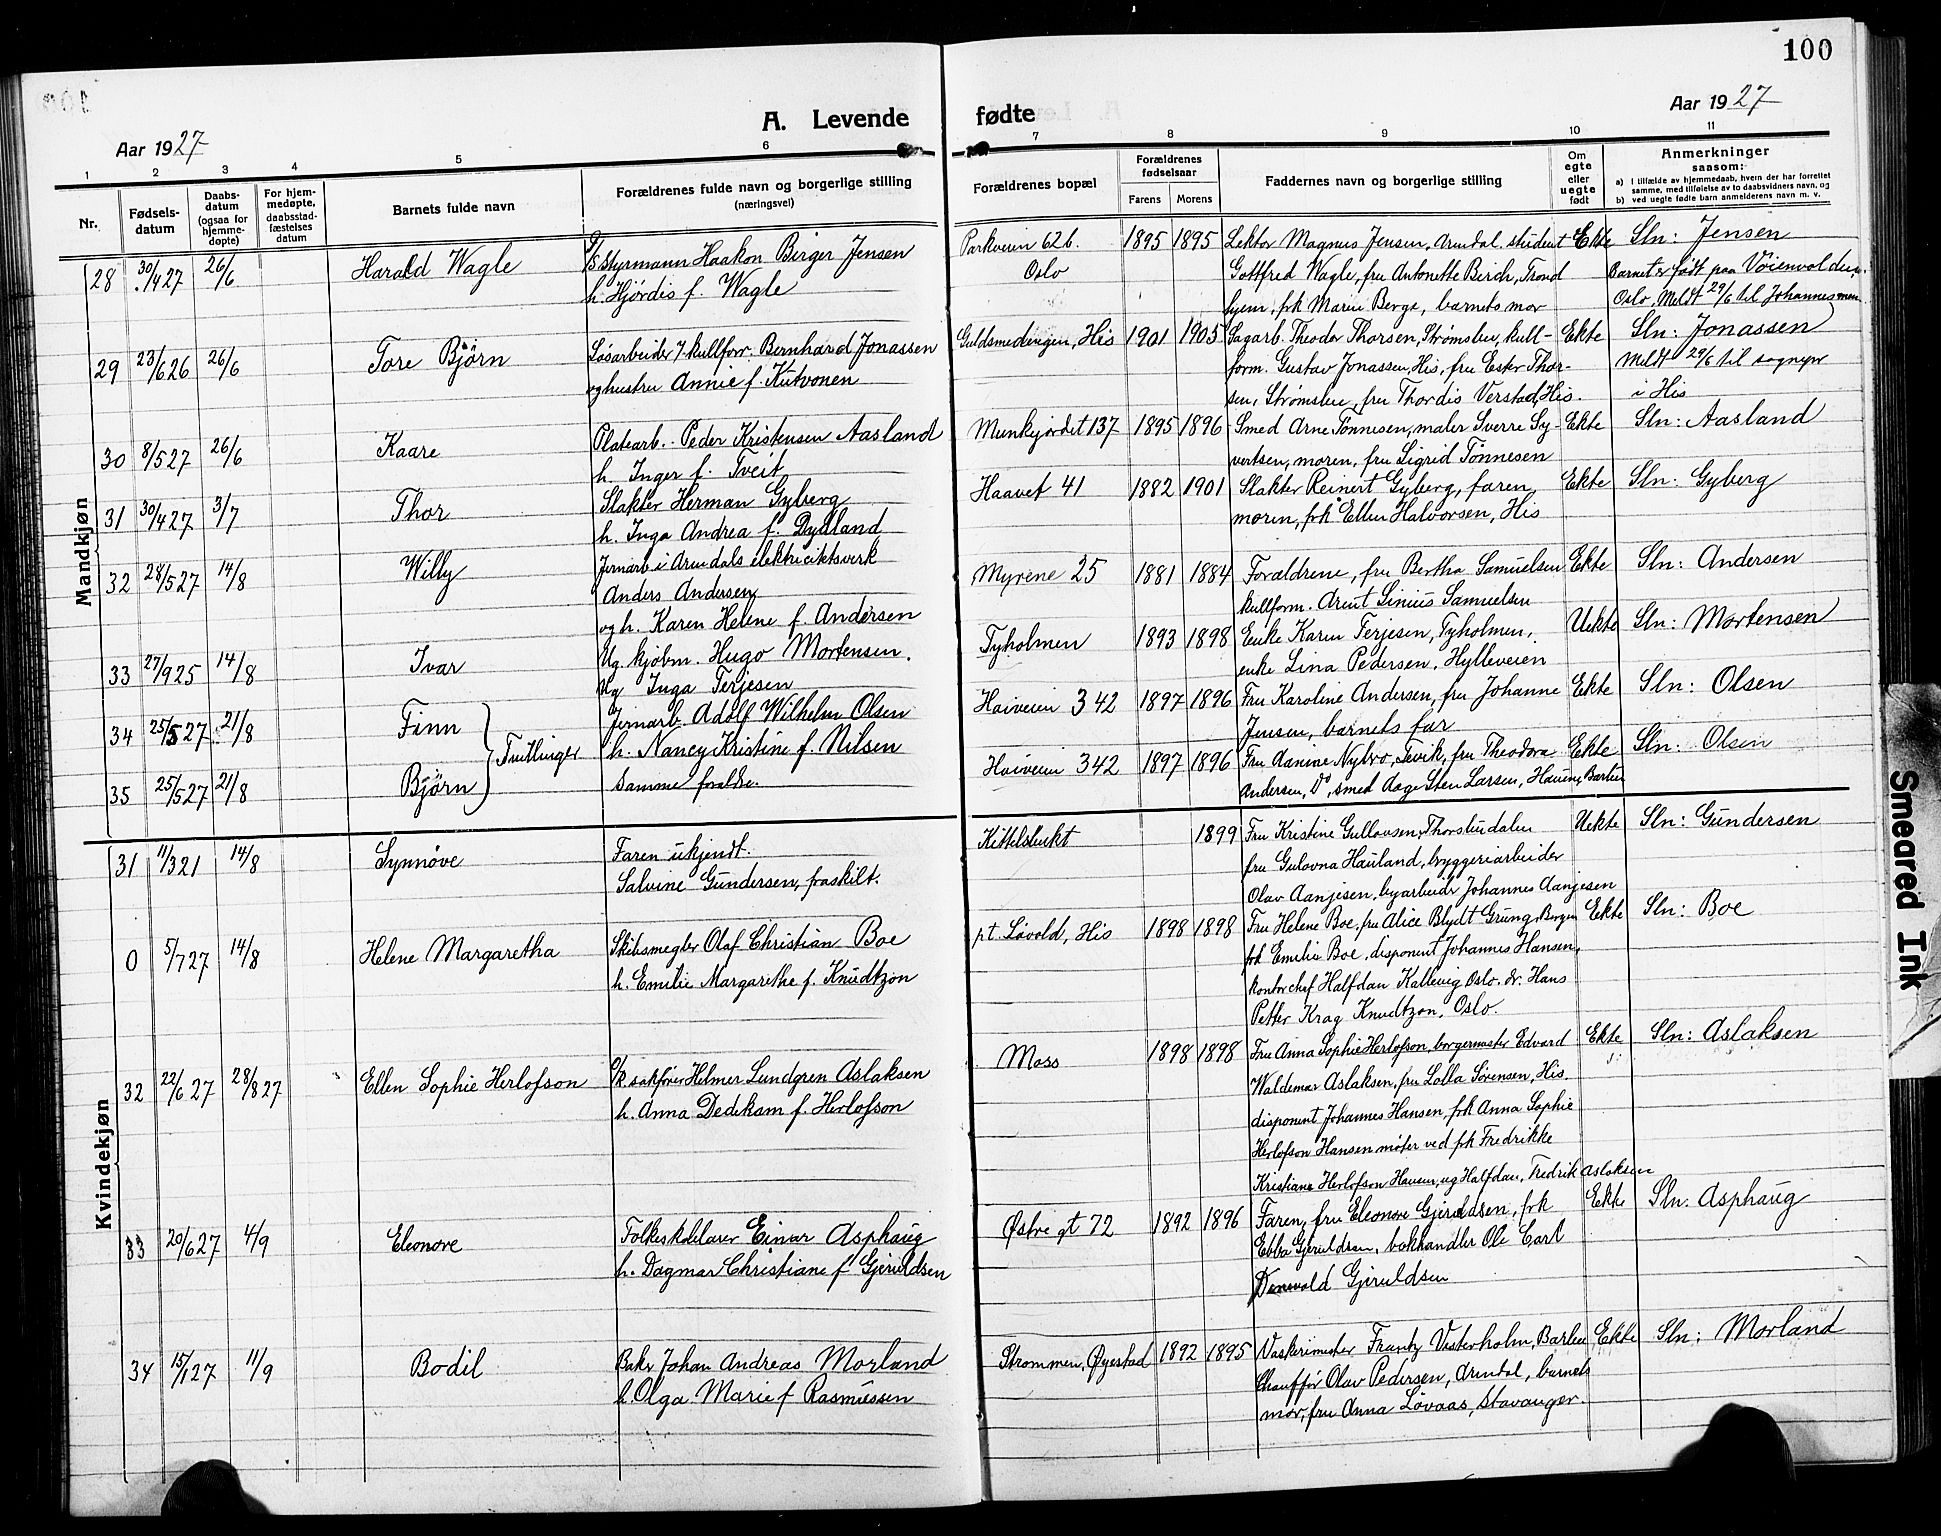 100
A. Levende fødte
Aar 1927
Aar 1927
1 2 3 4 5 6 7 8 9 10 11
Nr.
Fødsels-
datum
Daabs-
datum
(ogsaa for
hjemme-
døpte)
For hjem-
medøpte,
daabsstad-
fæstelses
datum
Barnets fulde navn
Forældrenes fulde navn og borgerlige stilling
(næringsvei)
Forældrenes bopæl
Forældrenes
fødselsaar
Farens
Morens
Faddernes navn og borgerlige stilling
Om
egte
eller
uegte
født
Anmerkninger
saasom:
a) I tilfælde av hjemmedaab, hvem der har forrettet
samme, med tilføielse av to daabsvidners navn, og
b) ved uegte fødte barn anmelderens navn m. v.
Mandkjøn
28 30/4 27 26/6 Harald Wagle
Styrmann Haakon Birger Jensen
h. Hjördis f. Wagle
Parkveien 62 b.
Oslo
1895 1895
Lektor Magnus Jensen, Arendal, student
Gottfred Wagle, fru Antonette Birch, Trond
hjem, frk Maren Berge, barnets mor
Ekte
Sln: Jensen
Barnet er født paa Voienvolden,
Oslo, Meldt 29/6 til Johannes men.
29 23/6 26 26/6 Tore Bjørn
Løsarbeider / kullforr. Bernhard Jonassen
og hustru Annie f. Kutvonen
Guldsmedengen, His 1901 1905
Sagarb. Theodor Thorsen, Strømsbu, kull-
form. Gustav Jonassen, His, fru Ester Thor-
sen, Strømsbu, fru Thordis Verstad, His.
Ekte
Sln: Jonassen
Meldt 29/6 til sognepr
i His
30 8/5 27 26/6 Kaare
Platearb. Peder Kristensen Aasland
h. Inger f. Tveit
Munkejordet 137 1895 1896
Smed Arne Tönnesen, maler Sverre Sy-
vertsen, moren, fru Sigrid Tönnesen
Ekte
Sln: Aasland
31 30/4 27 3/7 Thor
Slakter Herman Gyberg
h. Inga Andrea f. Dydland
Haavet 41 1882 1901
Slakter Reinert Gyberg, faren,
moren, frk Ellen Halvorsen, His
Ekte
Sln: Gyberg
32 28/5 27 14/8 Willy
Jernarb i Arendals elektricitetsverk
Anders Andersen
og h. Karen Helene f. Andersen
Myrene 25 1881 1884
Foraldrene, fru Bertha Samuelsen
kullform. Arent Sinius Samuelsen
Ekte
Sln: Andersen
33 27/9 25 14/8 Ivar
Ug. kjøbm. Hugo Mortensen.
Ug Inga Terjesen
Tyholmen 1893 1898
Enke Karen Terjesen, Tyholmen,
enke Lina Pedersen, Hylleveien
Uekte
Sln: Mortensen
34 25/5 27 21/8 Finn
Jernarb. Adolf Wilhelm Olsen
h. Nancy Kristine f. Nilsen
Tvillinger
Haiveien 342 1897 1896
Fru Karoline Andersen, fru Johanne
Jensen, barnets far
Ekte
Sln: Olsen
35 25/5 27 21/8 Bjørn
samme foraldre.
Haiveien 342 1897 1896
Fru Aanine Nybro, Tevik, fru Theodora
Andersen, D°, smed Aage Sten Larsen, Hausen, Barbu
Ekte
Sln: Olsen
Kvindekjøn
31 11/3 21 14/8 Synnøve
Faren ukjendt.
Salvine Gundersen, fraskilt.
Kittelsbukt 1899
Fru Kristine Gullovsen, Thorstendalen
fru Gulovna Hauland, bryggeriarbeider
Olav Aanjesen, byarbeider Johannes Aanjesen
Uekte
Sln: Gundersen
0 5/7 27 14/8 Helene Margaretha
Skibsmegler Olaf Christian Boe
h. Emilie Margarethe f. Knudtzon
pt. Løvold, His 1898 1898
Fru Helene Boe, fru Alice Blydt Grung, Bergen
frk Emilie Boe, disponent Johannes Hansen,
kontorchef Halfdan Kallevig Oslo. dr. Hans
Petter Krag Knudtzon, Oslo.
Eekte
Sln: Boe
32 22/6 27 28/8 27 Ellen Sophie Herlofson
O/R sakfører Helmer Lundgren Aslaksen
h. Anna Dedekam f. Herlofson
Moss 1898 1898
Fru Anna Sophie Herlofson, borgermester Edvard
Waldemar Aslaksen, fru Lolla Sörensen, His
disponent Johannes Hansen, frk Anna Sophie
Herlofson Hansen møter ved frk Fredrikke
Kristiane Herlofson Hansen, ug Halfdan, Fredrik Aslaksen
Ekte
Sln: Aslaksen
33 20/6 27 4/9 Eleonore
Folkeskolelærer Einar Asphaug
h. Dagmar Christiane f. Gjeruldsen
Østre gt 72 1892 1896
Faren, fru Eleonore Gjeruldsen, frk
Ebba Gjeruldsen, bokhandler Ole Carl
Denevold Gjeruldsen
Ekte
Sln: Asphaug
34 15/1 27 11/9 Bodil
Baker Johan Andreas Morland
h. Olga Marie f. Rasmussen
Strømmen, Øyestad 1892 1895
Vaskerimester Frantz Vesterholm, Barbu
Chauffør Olav Pedersen, Arendal, barnets
mor, fru Anna Lövaas, Stavanger.
Ekte
Sln: Morland
Smeared Ink